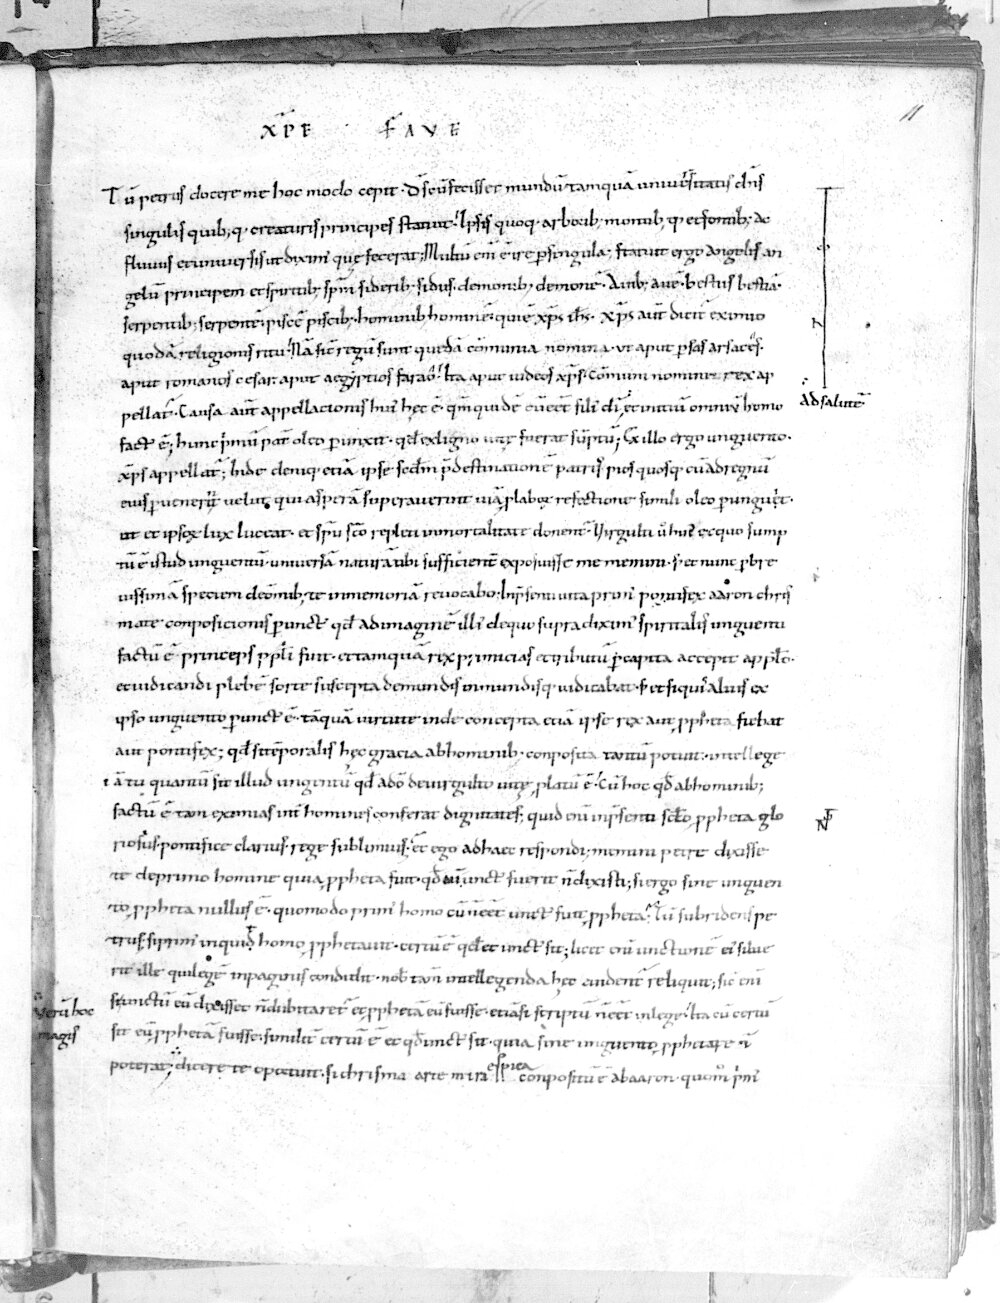 XPE FAVE
11
Tū petrus docere me hoc modo cepit · Dš cū fecisset mundū tamquā universitatis dñs
singulis quibusq· creaturis principes statuit · Ipsis quoq· arborib; montib; q· et fontib; ac
fluviis et universis ut dixim' quę fecerat; Multū enī ē ire p singula; statuit ergo Angelis an
gelū principem et spiritib; spm siderib; sidus · demonib; demonē · Avib; avē · bestiis bestiā ·
serpentib; serpentē · piscē piscib; · hominib hominē · qui ē xps ihs · xps aut dicit eximio
quodā religionis ritu · Nā sic regū sunt quedā cōmunia nomina · ut aput psas arsaces ·
aput romanos cesar · aput aegyptios farao · Ita aput iudeos xps · Cōmuni nomine rex ap
pellat · Causa aut appellacionis hui' hęc ē · qm quidē cū eet fili' di et initiū omniū homo
fact' ē; hunc primū pat oleo punxit · qd ex ligno vitę fuerat sūptū; Ex illo ergo unguento ·
xps appellat; Inde deniq· etiā ipse scdm pdestinationē patris pios quosq· cū ad regnū
eius pvenerit velut qui asperā superaverint viā p labore refectione simili oleo punguet ·
ut et ipsorū lux luceat · et spu sco repleti inmortalitate donent · Virgulti u hui' ex quo sump
tū ē istud unguentū · universā naturā tibi sufficient exposuisse me memini · s et nunc p bre
vissimā speciem de omnib; te in memoriā revocabo · In psenti vita prim' pontifex aaron chris
mate conposicionis punct' qd ad imaginē illi' de quo supra dixim' spiritalis unguenti
factū ē princeps ppli fuit · et tamquā rex primicias et tributū p capita accepit a pplo ·
et iudicandi plebē sorte suscepta de mundis inmundisq· iudicabat · S et siquis alius ex
ipso unguento punct' ē · tāquā virtute inde concepta etiā ipse rex aut ppheta fiebat
aut pontifex; qd si tēporalis hęc gracia ab hominib· conposita tantū potuit · intellege
iā tu quantū sit illud ungentū qd a dō de virgulto vitę platū ē · Cū hoc qd ab hominib;
factū ē tam eximias int homines conferat dignitates; quid enī in psenti sclo ppheta glo
riosius · pontifice clarius · rege sublimius · et ego ad haec respondi; memini petre dixisse
te de primo homine quia ppheta fuit · qd unct' fuerit ñ dixisti; si ergo sine unguen
to ppheta nullus ē · quomodo prim' homo cū ñ eet unct' fuit ppheta · Tū subridens pe
trus · si prim' inquid homo pphetavit · certū ē qd et unct' sit; licet enī unctionē ei' silue
rit ille qui legē in paginis condidit · nob tam intellegenda hęc evident reliquit; sic enī
si unctū eū dixisset ñ dubitaret et pphetā eū fuisse · etiā si scriptū ñ eet in lege · Ita cū certū
sit eū pphetā fuisse · similit certū ē et qd unct' sit · quia sine unguento pphetare ñ
poterat; dicere te oportuit · si chrisma arte mira espiea conpositū ē ab aaron · quom prim'
Ad salutē
Verū hoc
magis